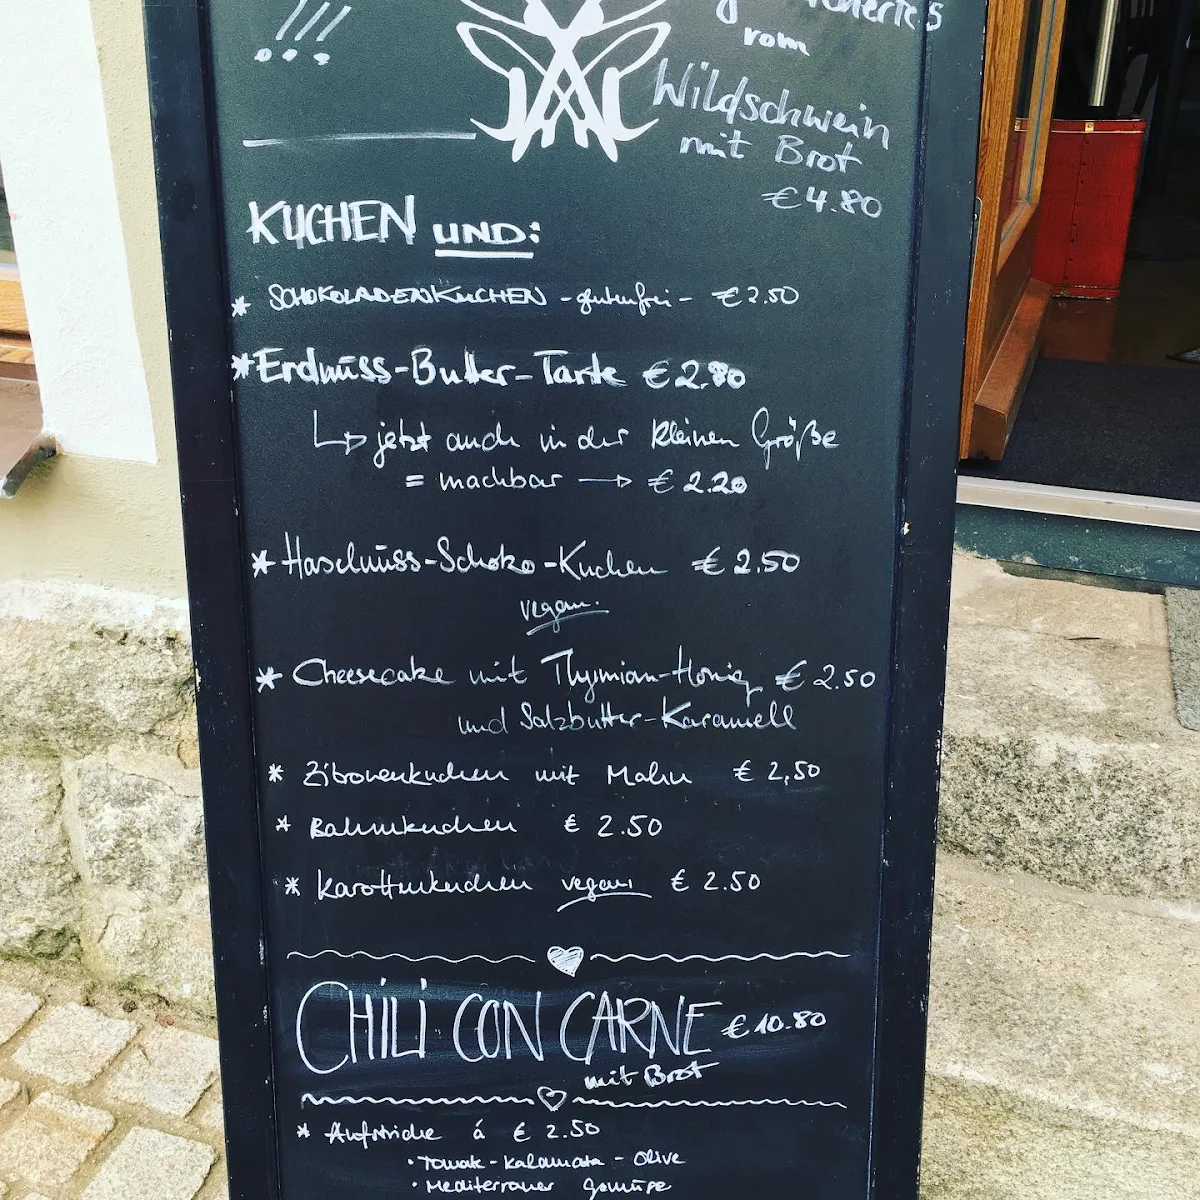 !!!
vom
Wildschwein
mit Brot
€ 4.80
KUCHEN UND:
* SCHOKOLADENKUCHEN - glutenfrei - € 2.50
* Erdnüss-Butter-Tarte € 2.80
↳ jetzt auch in der kleinen Größe
= machbar → € 2.20
* Haselnüss-Schoko-Kuchen € 2.50
vegan.
* Cheesecake mit Thymian-Honig € 2.50
und Salzbutter-Karamell
* Zitronenkuchen mit Mohn € 2,50
* Bahnenkuchen € 2.50
* Karottenkuchen vegan € 2.50
CHILI CON CARNE € 10.80
mit Brot
* Aufstriche á € 2.50
• Tomate - Kalamata - Olive
• Mediterraner Gemüse